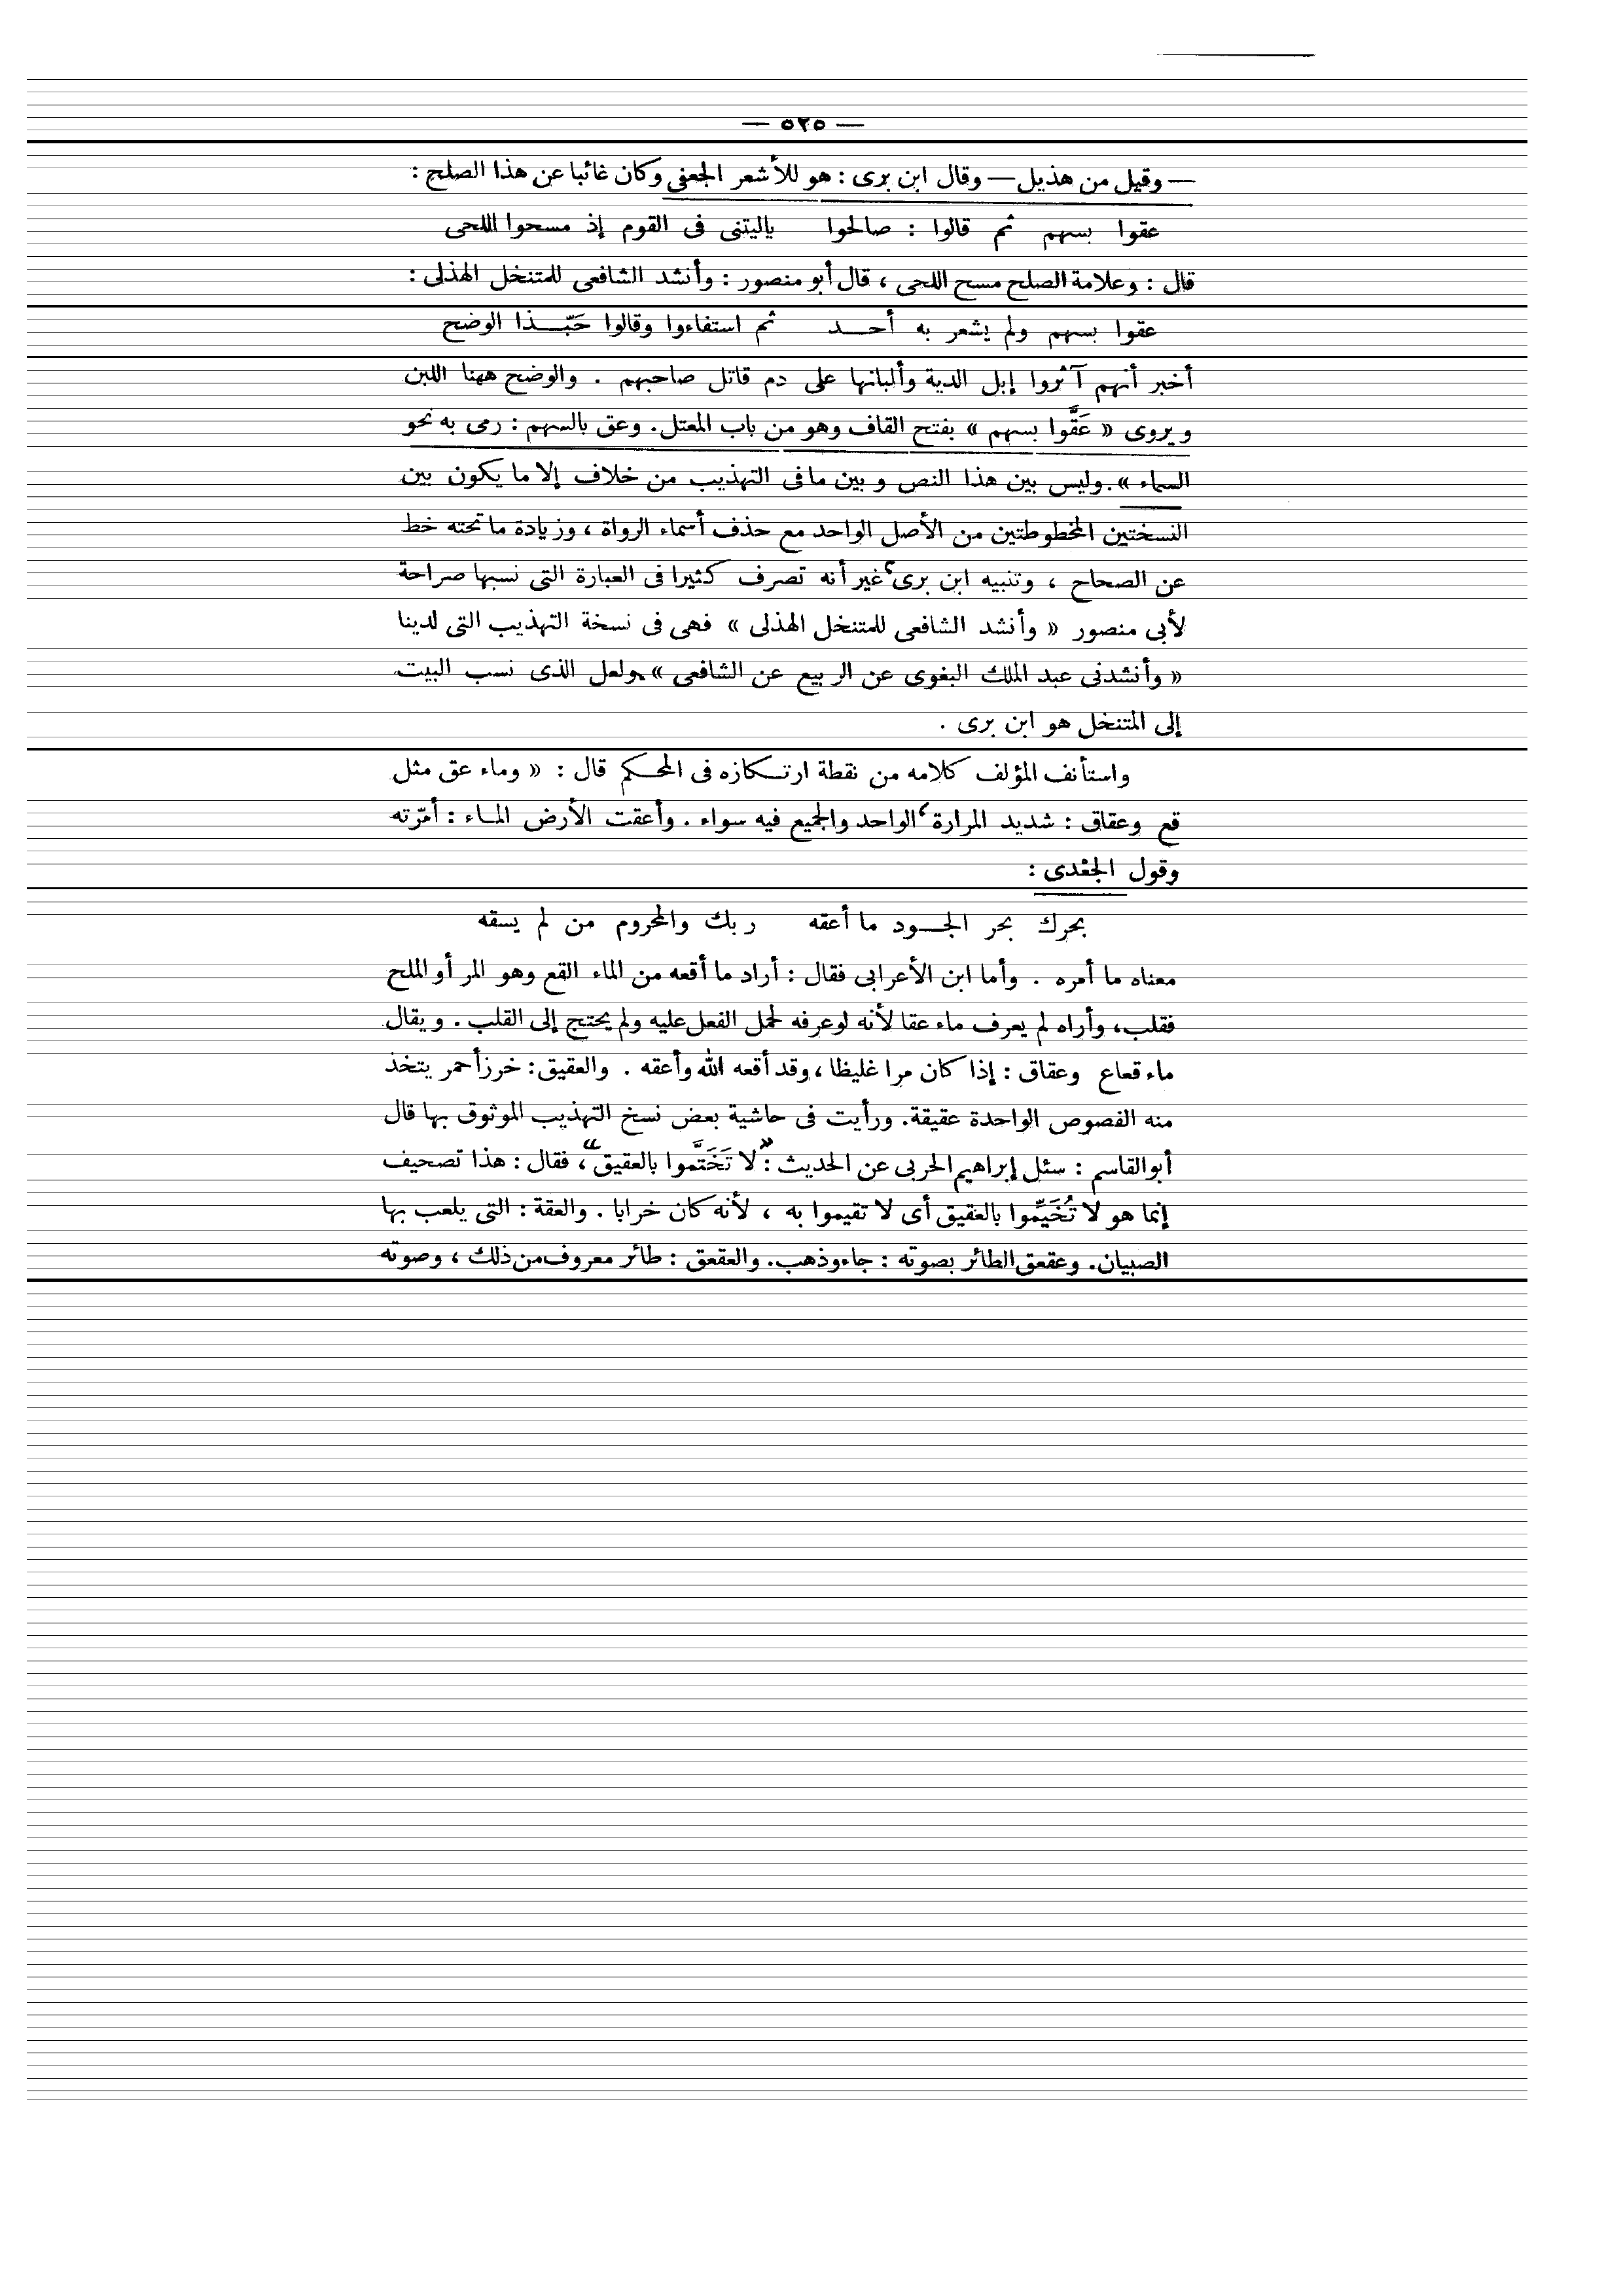 — ٥٢٥ —
— وقيل من هذيل — وقال ابن برى : هو للأشعر الجعفى وكان غائبا عن هذا الصلح :
عقوا بسهم ثم قالوا : صالحوا ياليتنى فى القوم إذ مسحوا اللحى
قال : وعلامة الصلح مسح اللحى ، قال أبو منصور : وأنشد الشافعى للمتنخل الهذلى :
عقوا بسهم ولم يشعر به أحــد ثم استفاءوا وقالوا حَبّــذا الوضح
أخبر أنهم آثروا إبل الدية وألبانها على دم قاتل صاحبهم . والوضح ههنا اللبن
ويروى « عَقَّوا بسهم » بفتح القاف وهو من باب المعتل . وعق بالسهم : رمى به نحو
السماء » . وليس بين هذا النص و بين مافى التهذيب من خلاف إلا ما يكون بين
النسختين المخطوطتين من الأصل الواحد مع حذف أسماء الرواة ، وزيادة ماتحته خط
عن الصحاح ، وتنبيه ابن برى ، غير أنه تصرف كثيرا فى العبارة التى نسبها صراحة
لأبى منصور « وأنشد الشافعى للمتنخل الهذلى » فهى فى نسخة التهذيب التى لدينا
« وأنشدنى عبد الملك البغوى عن الربيع عن الشافعى » . ولعل الذى نسب البيت
إلى المتنخل هو ابن برى .
واستأنف المؤلف كلامه من نقطة ارتكازه فى المحكم قال : « وماء عق مثل
قع وعقاق : شديد المرارة ، الواحد والجميع فيه سواء . وأعقت الأرض المـاء : أمّرته
وقول الجعْدى :
بحرك بحر الجــود ما أعقه ربك والمحروم من لم يسقه
معناه ما أمره . وأما ابن الأعرابى فقال : أراد ما أقعه من الماء القع وهو المر أو الملح
فقلب ، وأراه لم يعرف ماء عقا لأنه لوعرفه لحمل الفعل عليه ولم يحتج إلى القلب . ويقال
ماء قعاع وعقاق : إذا كان مرا غليظا ، وقد أقعه الله وأعقه . والعقيق : خرز أحمر يتخذ
منه الفصوص الواحدة عقيقة . ورأيت فى حاشية بعض نسخ التهذيب الموثوق بها قال
أبوالقاسم : سئل إبراهيم الحربى عن الحديث : ” لا تَخَتَّموا بالعقيق “ ، فقال : هذا تصحيف
إنما هو لا تُخَيِّموا بالعقيق أى لا تقيموا به ، لأنه كان خرابا . والعقة : التى يلعب بها
الصبيان . وعقعق الطائر بصوته : جاء وذهب . والعقعق : طائر معروف من ذلك ، وصوته